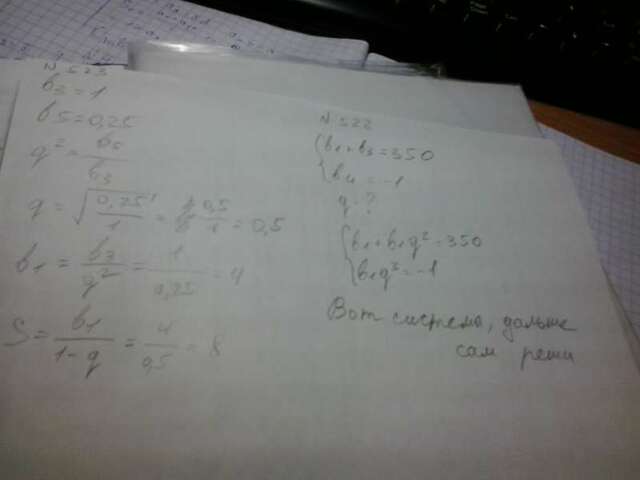 N 523
b3 = 1
b5 = 0,25
q² = b5/b3
q = √(0,25/1) = 0,5/1 = 0,5
b1 = b3/q² = 1/0,25 = 4
S = b1/(1-q) = 4/0,5 = 8
N 522
{b1+b3=350
{b4=-1
q-?
{b1+b1q²=350
{b1q³=-1
Вот система, дальше
сам реши